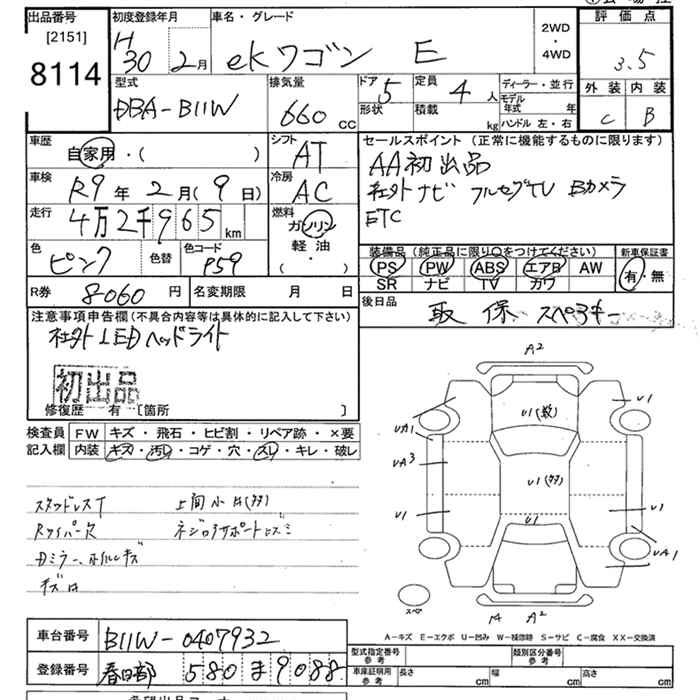 出品番号 初度登録年月 車名・グレード 評価点
[2151]
8114
H30 2月 ekワゴン E
2WD
・
4WD
3.5
型式 排気量 ドア 定員 ディーラー・並行 外装 内装
DBA-B11W 660cc 5 4人 モデル年式 年 C B
形状 積載 kg ハンドル 左・右
車歴 シフト セールスポイント (正常に機能するものに限ります)
自家用・( ) AT AA初出品
車検 冷房 社外ナビ フルセグTV Bカメラ
R9年2月(9日) AC ETC
走行 燃料
4万2千965km ガソリン
軽油
・
( )
色 色替 色コード
ピンク P59
装備品 (純正品に限り○をつけてください) 新車保証書
PS PW ABS エアB AW 有・無
SR ナビ TV カワ
R券 8060円 名変期限 月 日 後日品
取 保 スペアキー
注意事項申告欄 (不具合内容等は具体的に記入して下さい)
社外LEDヘッドライト
初出品
修復歴 有 [箇所 ]
検査員 FW キズ・飛石・ヒビ割・リペア跡・×要
記入欄 内装 キズ・汚レ・コゲ・穴・スレ・キレ・破レ
スタッドレスT
Rワイパー欠
Dミラー、ホイルキズ
A2
U1
U1
UA1
UA3
U1
U1
U1
U1
UA1
A2
スペア
A-キズ E-エクボ U-凹み W-補修跡 S-サビ C-腐食 XX-交換済
車台番号 B11W-0407932
登録番号 春日部 580 ま 9088
型式指定番号 参考 類別区分番号 参考
車庫証明用 参考 長さ cm 幅 cm 高さ cm